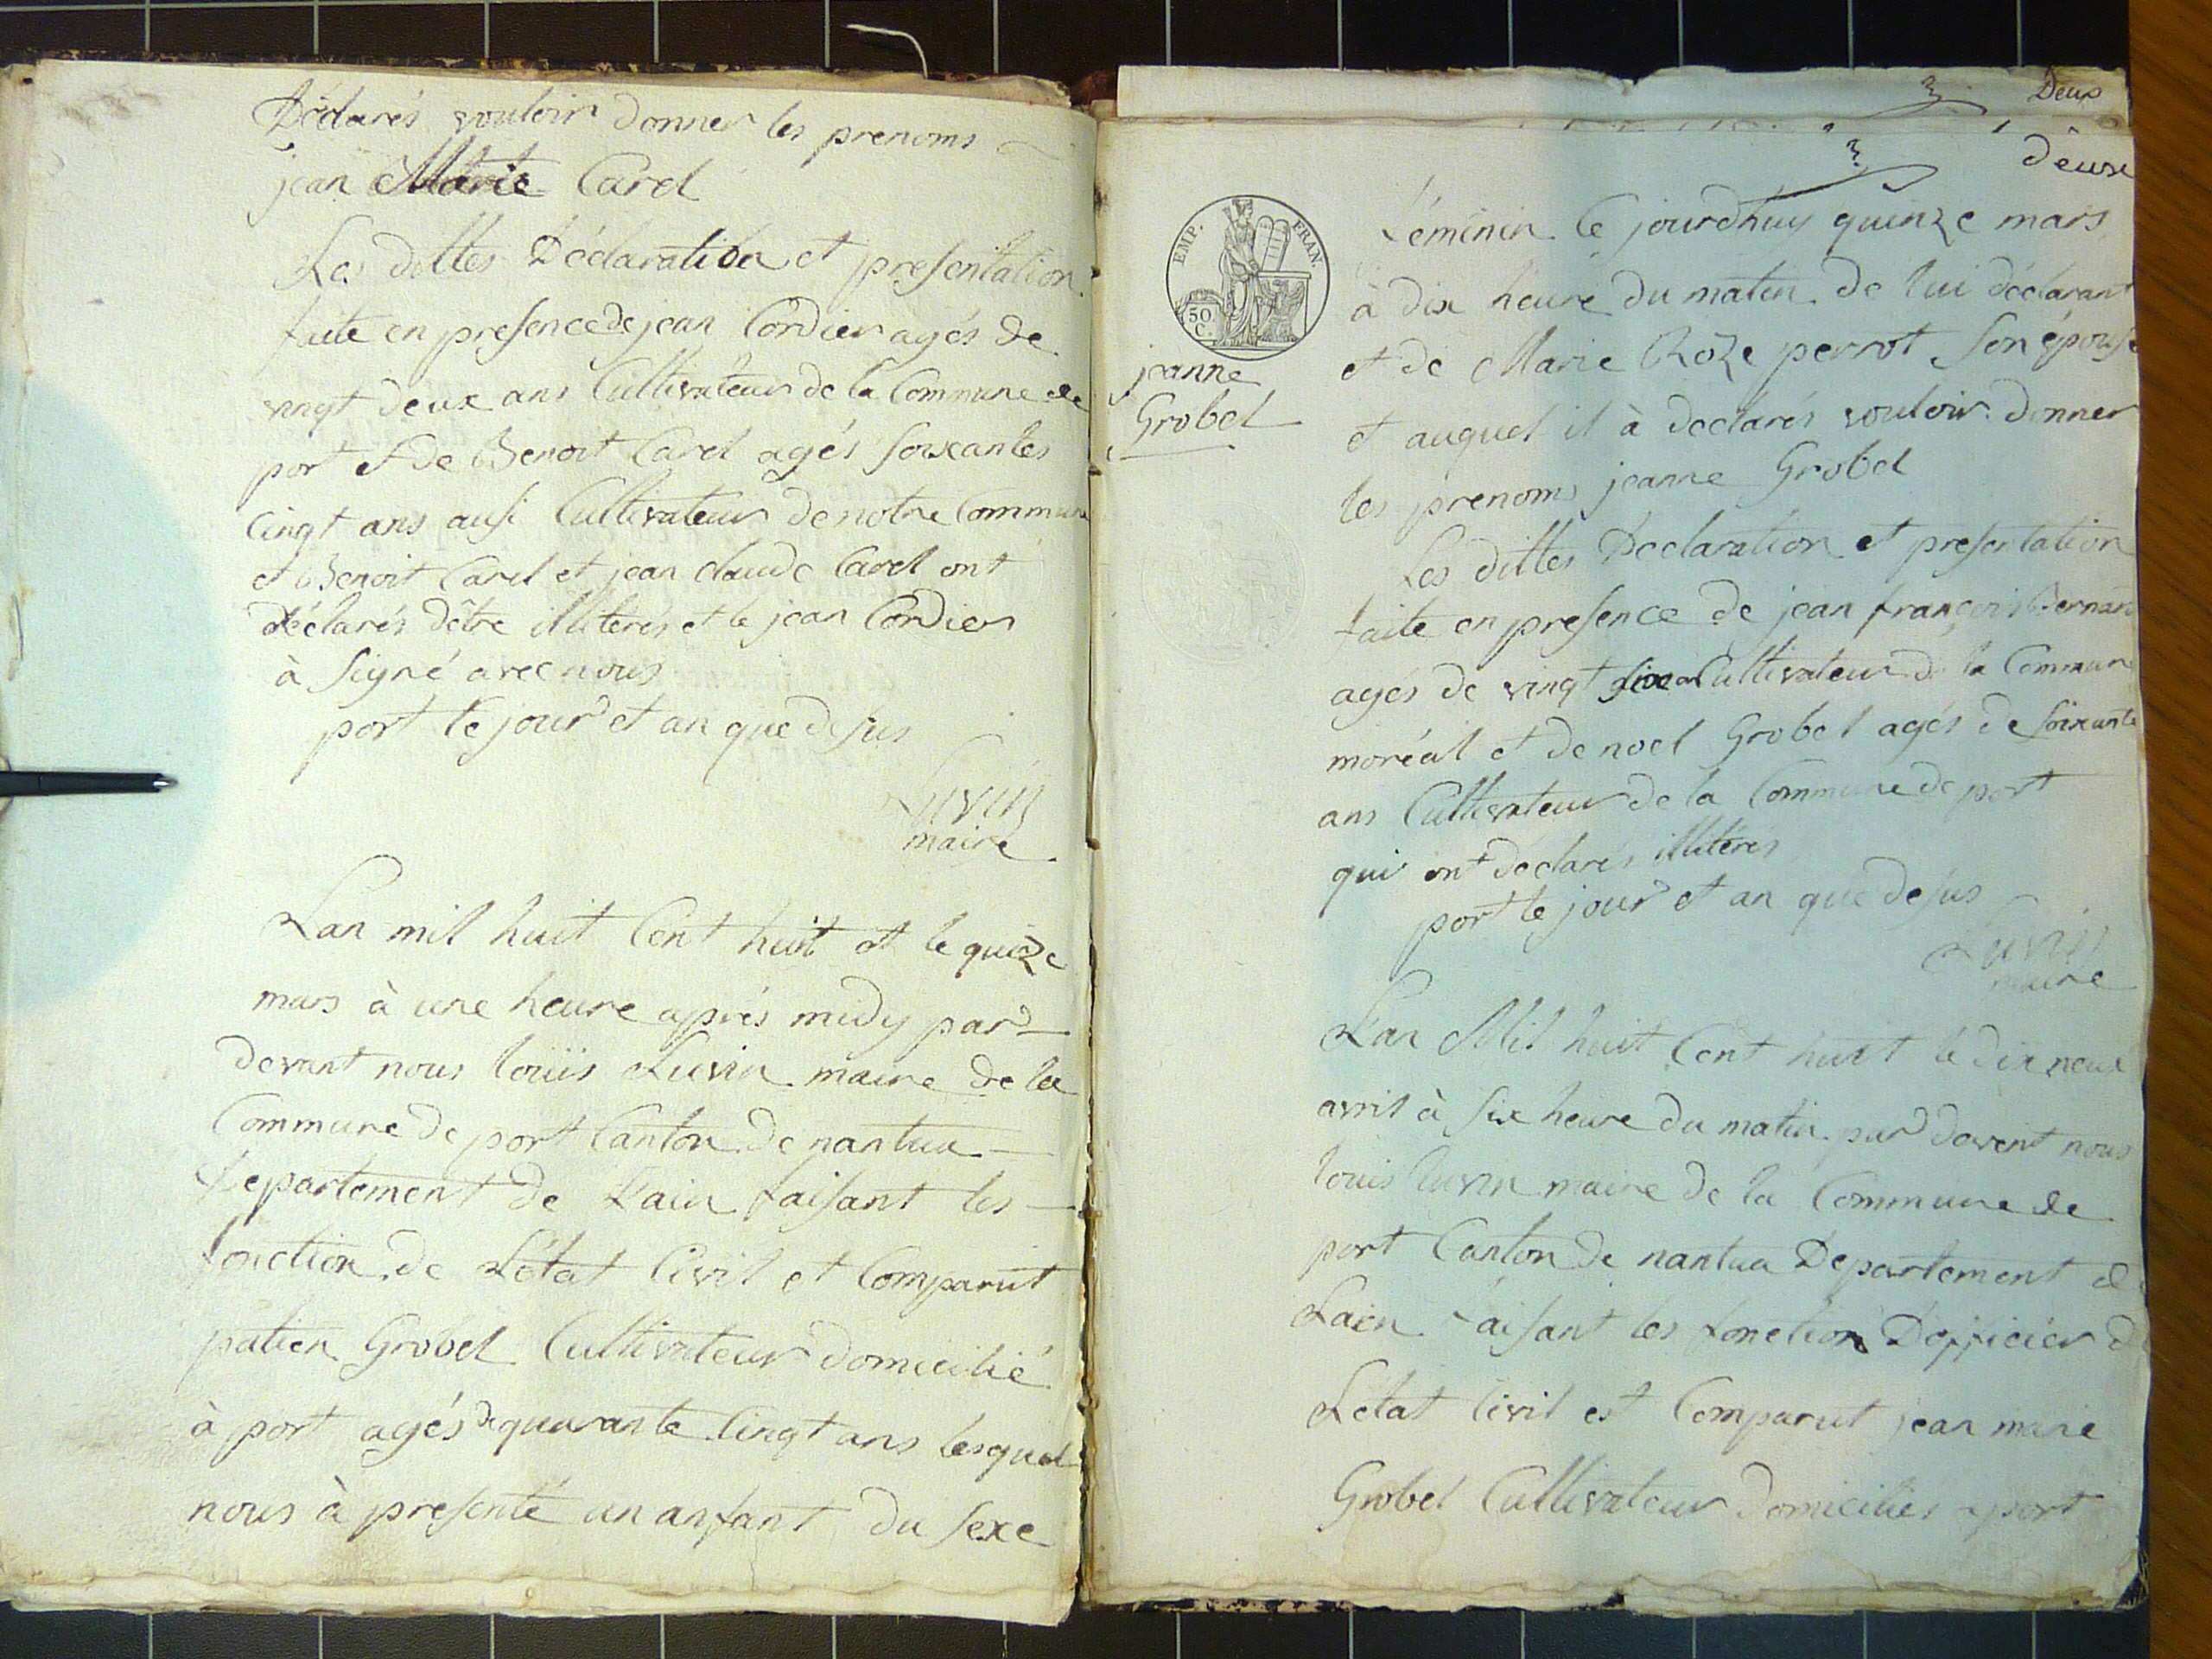 Déclarés vouloir donner les prenoms
jean Marie Carel
Les dittes Déclaration et presentation
faite en presence de jean Cordier agés de
vingt deux ans Cultivateur de la Commune de
port et de Benoit Carel agés soixantes
Cingt ans ausi Cultivateur de notre Commune
et Benoit Carel et jean claude Carel ont
déclarés dêtre illiterés et le jean Cordier
à signé avec nous
port le jour et an que desus
Luvin
maire
Lan mil huit Cent huit et le quize
mars à une heure aprés midy par
devant nous loüis Luvin maire de la
Commune de port Canton de nantua
departement de Lain faisant les
fonction de Létat Civil et Comparut
patien Grobel Cultivateur domicilié
à port agés de quarante Cingt ans lesquel
nous à presenté un anfant du sexe
Deux
deux
EMP. FRAN.
50 C.
jeanne
Grobel
féminin le jourdhuy quinze mars
à dix heure du matin de lui déclarant
et de Marie Roze perrot son épouse
et auquel il à declarés vouloir donner
les prenoms jeanne Grobel
Les dittes Declaration et presentation
faite en presence de jean françois Bernard
agés de vingt six an Cultivateur de la Commune
moréal et de noel Grobel agés de soixante
ans Cultivateur de la Commune de port
qui ont declarés illiterés
port le jour et an que desus
Luvin
maire
Lan Mil huit Cent huit le dix neuf
avril à six heure du matin par devent nous
louis luvin maire de la Commune de
port Canton de nantua Departement de
Lain faisant les fonction Dofficier de
Létat Civil est Comparut jean marie
Grobel Cultivateur domiciliés a port